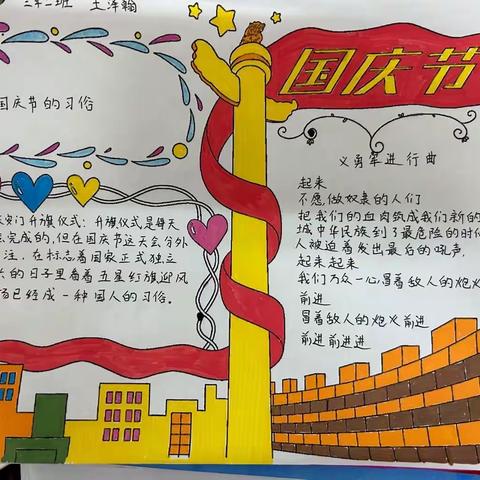 三年二班 王泽翰
国庆节的习俗
安门升旗仪式：升旗仪式是每天
完成的，但在国庆节这天会另外
注，在标志着国家正式独立
的日子里看着五星红旗迎风
场已经成一种国人的习俗。
国庆节
义勇军进行曲
起来
不愿做奴隶的人们
把我们的血肉筑成我们新的
城中华民族到了最危险的时
人被迫着发出最后的吼声,
起来起来
我们万众一心冒着敌人的炮火
前进
冒着敌人的炮火前进
前进前进进